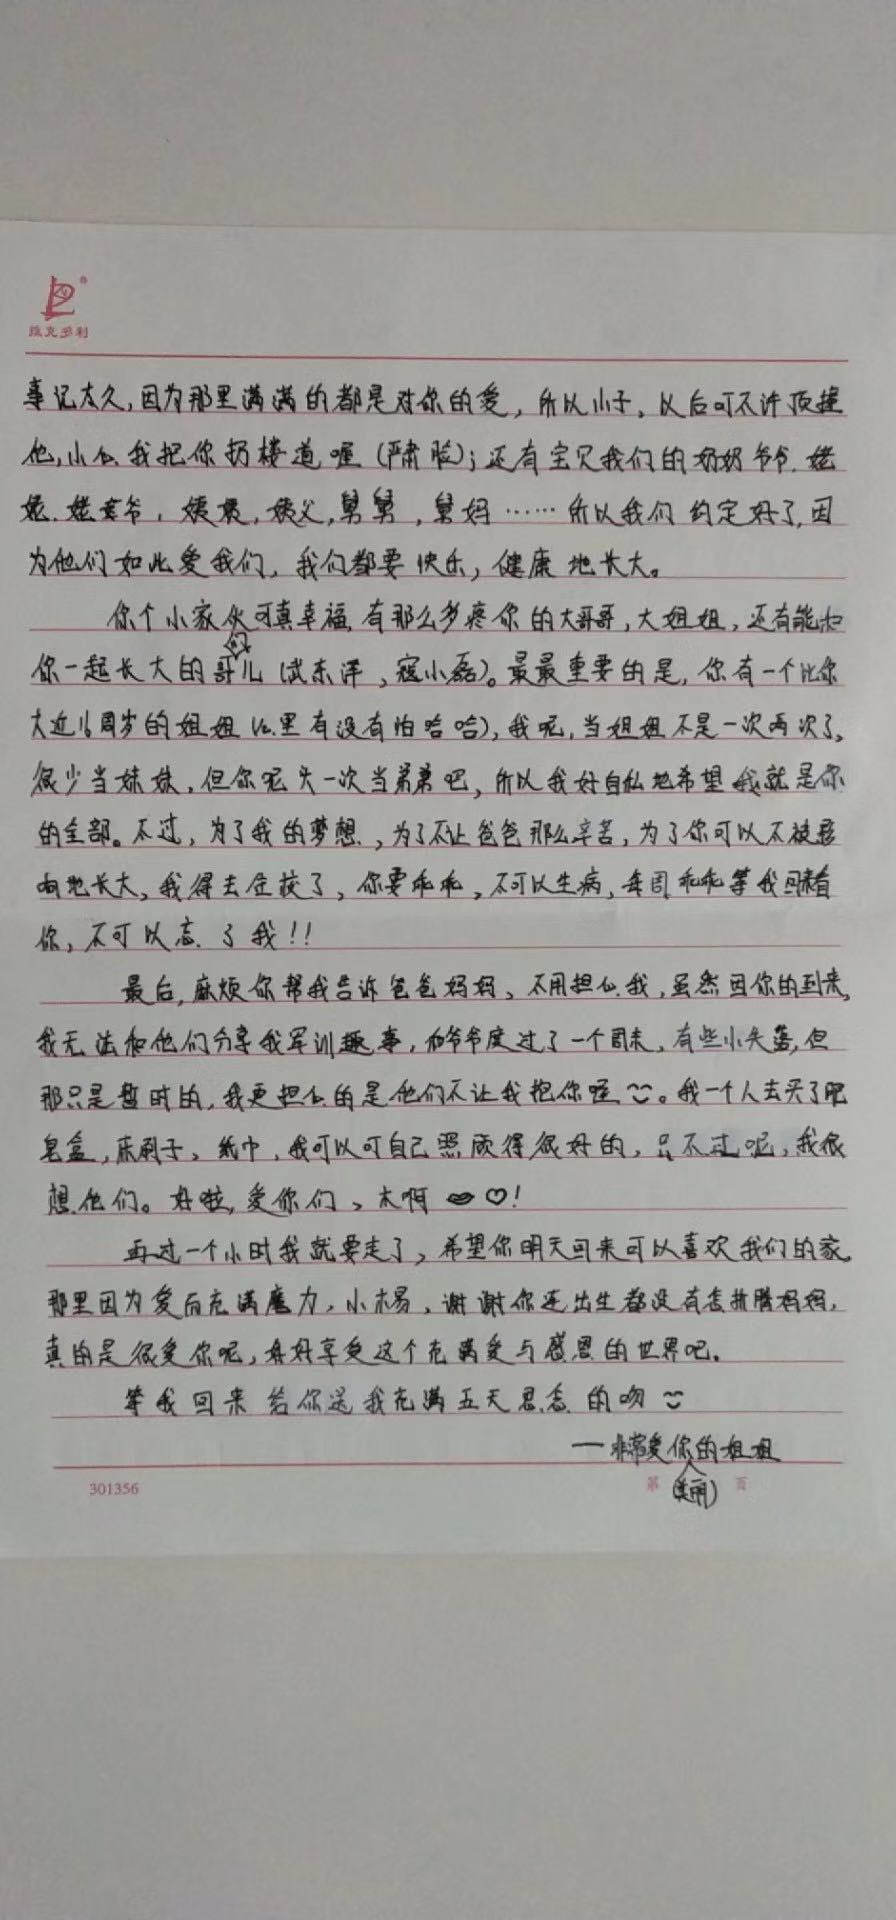 维克多利
事记太久,因为那里满满的都是对你的爱,所以小子,以后可不许顶撞
他,小心我把你扔楼道喔(严肃脸);还有宝贝我们的奶奶爷爷、姥
姥、姥姥爷,姨姨,姨父,舅舅,舅妈……所以我们约定好了,因
为他们如此爱我们,我们都要快乐,健康地长大。
你个小家伙可真幸福,有那么多疼你的大哥哥,大姐姐,还有能和
你一起长大的哥儿们(武东泽,寇小磊)。最最重要的是,你有一个比你
大近16周岁的姐姐(心里有没有怕哈哈),我呢,当姐姐不是一次两次了,
很少当妹妹,但你呢头一次当弟弟吧,所以我好自私地希望我就是你
的全部。不过,为了我的梦想,为了不让爸爸那么辛苦,为了你可以不被影
响地长大,我得去住校了,你要乖乖,不可以生病,每周乖乖等我回来看
你,不可以忘了我!!
最后,麻烦你帮我告诉爸爸妈妈、不用担心我,虽然因你的到来,
我无法和他们分享我军训趣事,和爷爷度过了一个周末,有些小失落,但
那只是暂时的,我更担心的是他们不让我抱你喔。我一个人去买了肥
皂盒,床刷子,纸巾,我可以可自己照顾得很好的,只不过呢,我很
想他们。好啦,爱你们、木啊!
再过一个小时我就要走了,希望你明天回来可以喜欢我们的家,
那里因为爱而充满魔力,小杨,谢谢你还出生都没有怎折腾妈妈,
真的是很爱你呢,好好享受这个充满爱与感恩的世界吧。
等我回来给你送我充满五天思念的吻
——非常爱你的姐姐
301356 第 页